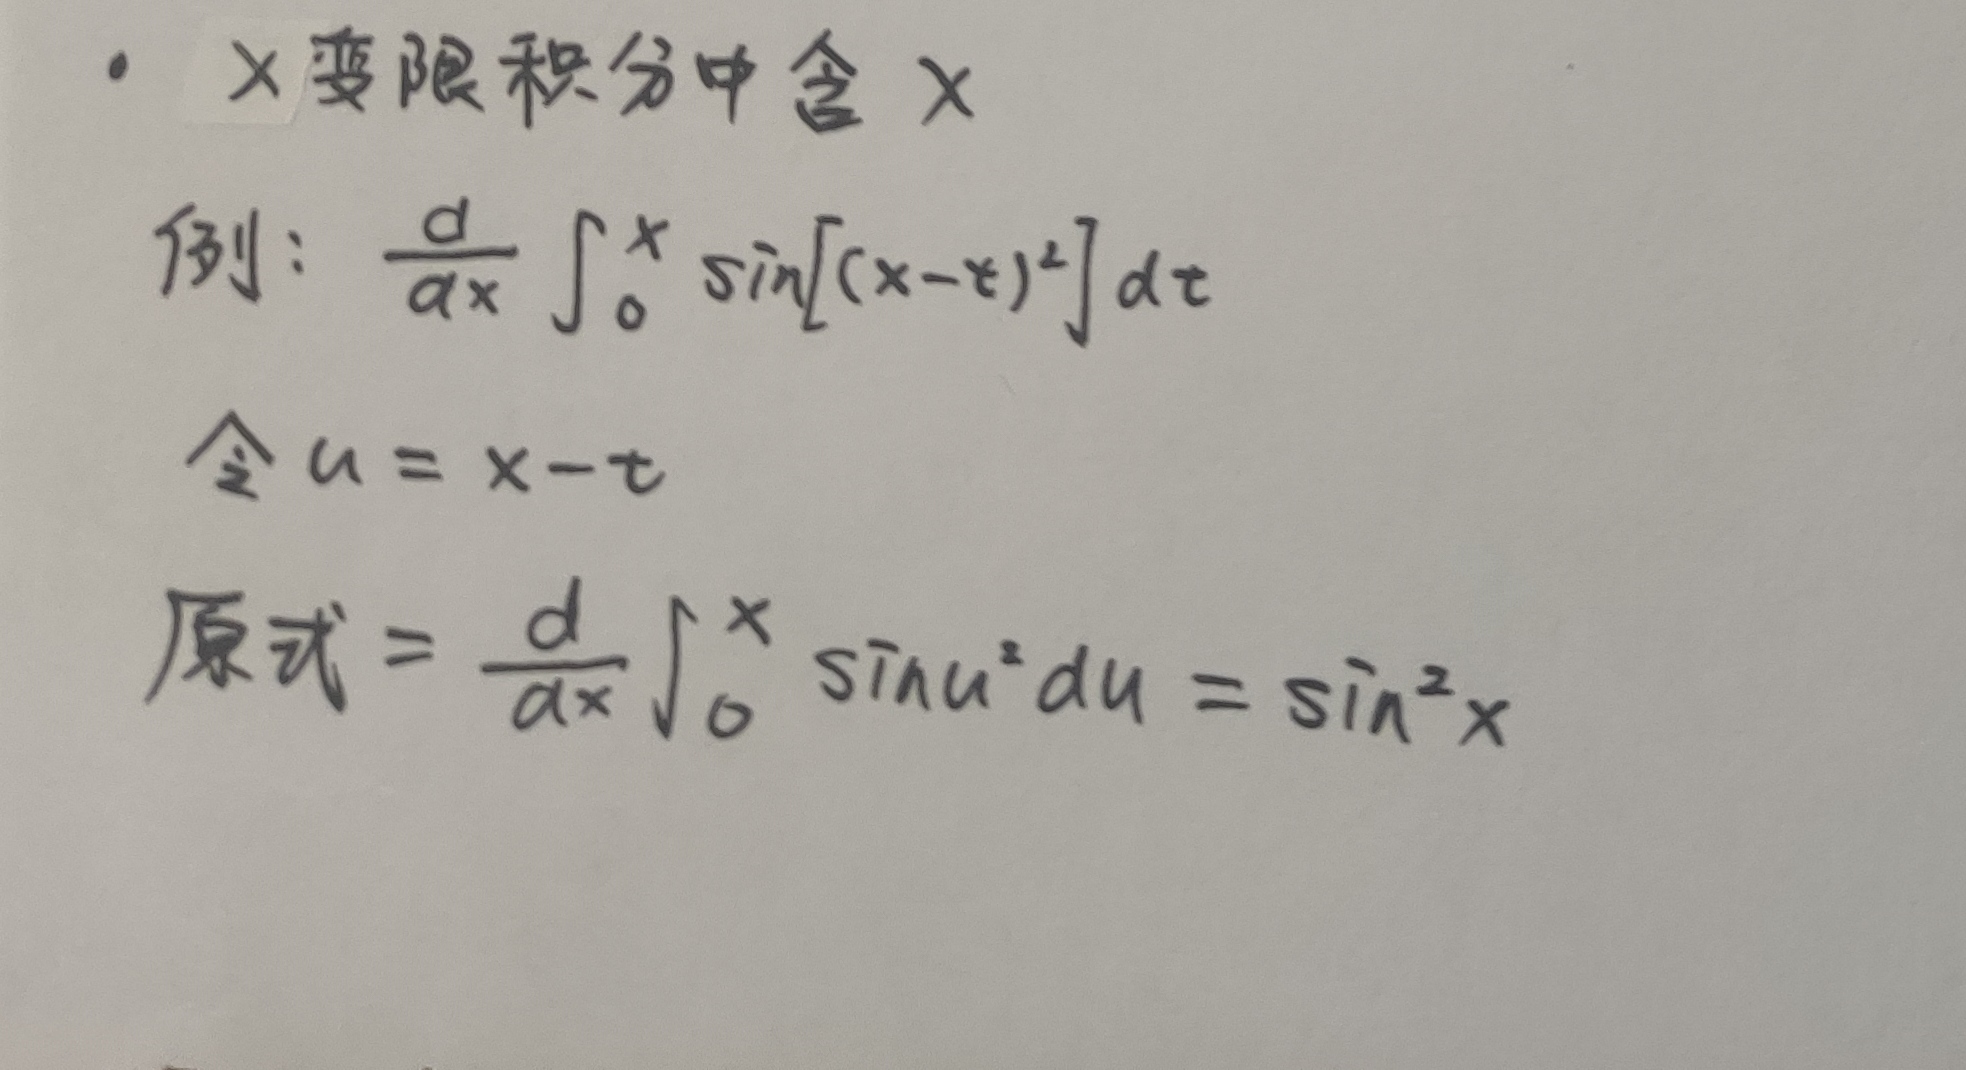 · x变限积分中含x
例: d/dx ∫₀ˣ sin[(x-t)²]dt
令u=x-t
原式 = d/dx ∫₀ˣ sinu²du = sin²x